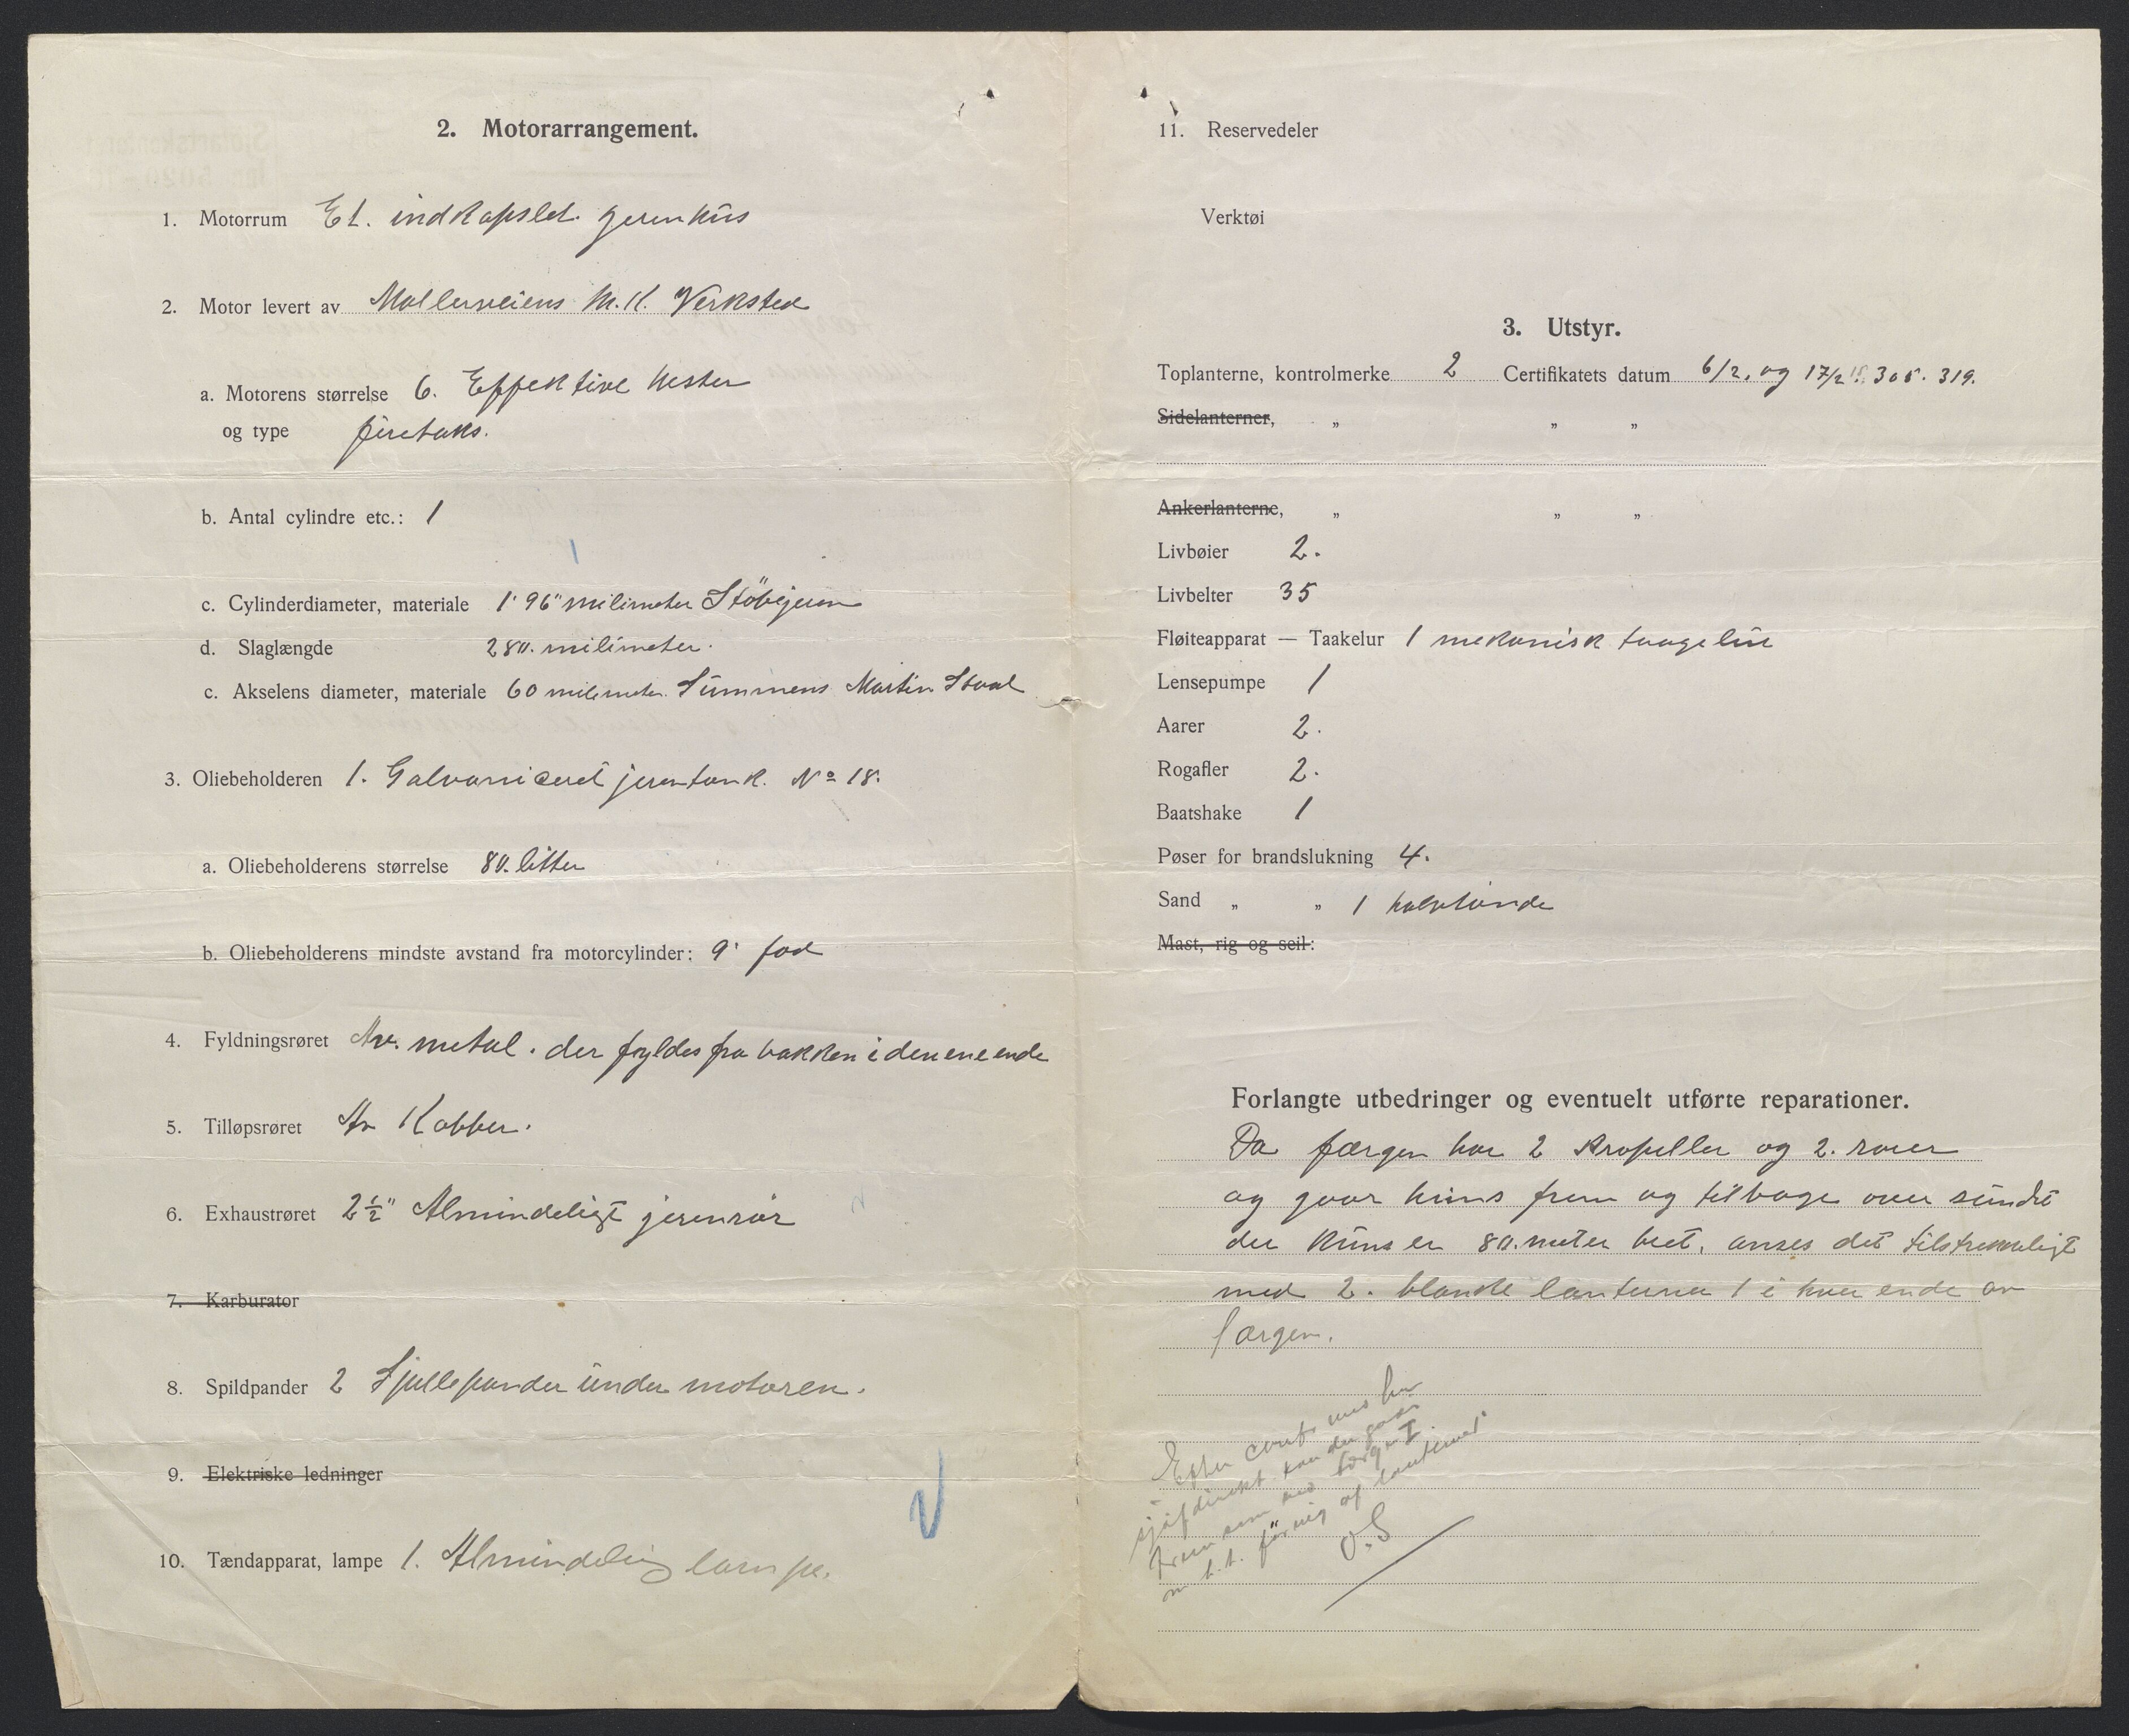 2. Motorarrangement.
1. Motorrum Et. indkapslet. jernhus
2. Motor levert av Møllerveiens M.K. Verksted
a. Motorens størrelse 6. Effektive hester
og type firetaks.
b. Antal cylindre etc.: 1
c. Cylinderdiameter, materiale 196 milimeter Stöbejern
d. Slaglængde 280. milimeter.
c. Akselens diameter, materiale 60 milimeter. Simmens Martin Staal
3. Oliebeholderen 1. Galvaniceret jerntank. No 18.
a. Oliebeholderens størrelse 80. litter
b. Oliebeholderens mindste avstand fra motorcylinder: 9' fod
4. Fyldningsrøret Av. metal. der fyldes fra bakken i den ene ende
5. Tilløpsrøret Av Kobber.
6. Exhaustrøret 2½" Almindeligt jernrör
7. Karburator
8. Spildpander 2 Spillepander under motoren.
9. Elektriske ledninger
10. Tændapparat, lampe 1. Almindelig lampe.
11. Reservedeler
Verktøi
3. Utstyr.
Toplanterne, kontrolmerke 2 Certifikatets datum 6/2. og 17/2 15. 305. 319.
Sidelanterner, „ „ „
Ankerlanterne, „ „ „
Livbøier 2.
Livbelter 35
Fløiteapparat — Taakelur 1 mekanisk taagelur
Lensepumpe 1
Aarer 2.
Rogafler 2.
Baatshake 1
Pøser for brandslukning 4.
Sand „ „ 1 halvtønde
Mast, rig og seil:
Forlangte utbedringer og eventuelt utførte reparationer.
Da færgen har 2 Propeller og 2. roer
og gaar kuns frem og tilbage over sundet
der kuns er 80. meter bret, anses det tilstrekkeligt
med 2. blanke lanterner 1 i hver ende av
færgen.
Efter conf. med hr
sjöfdirekt. kan der gaaes
frem som med færge I
om b.t. föring af lanterner
O.S